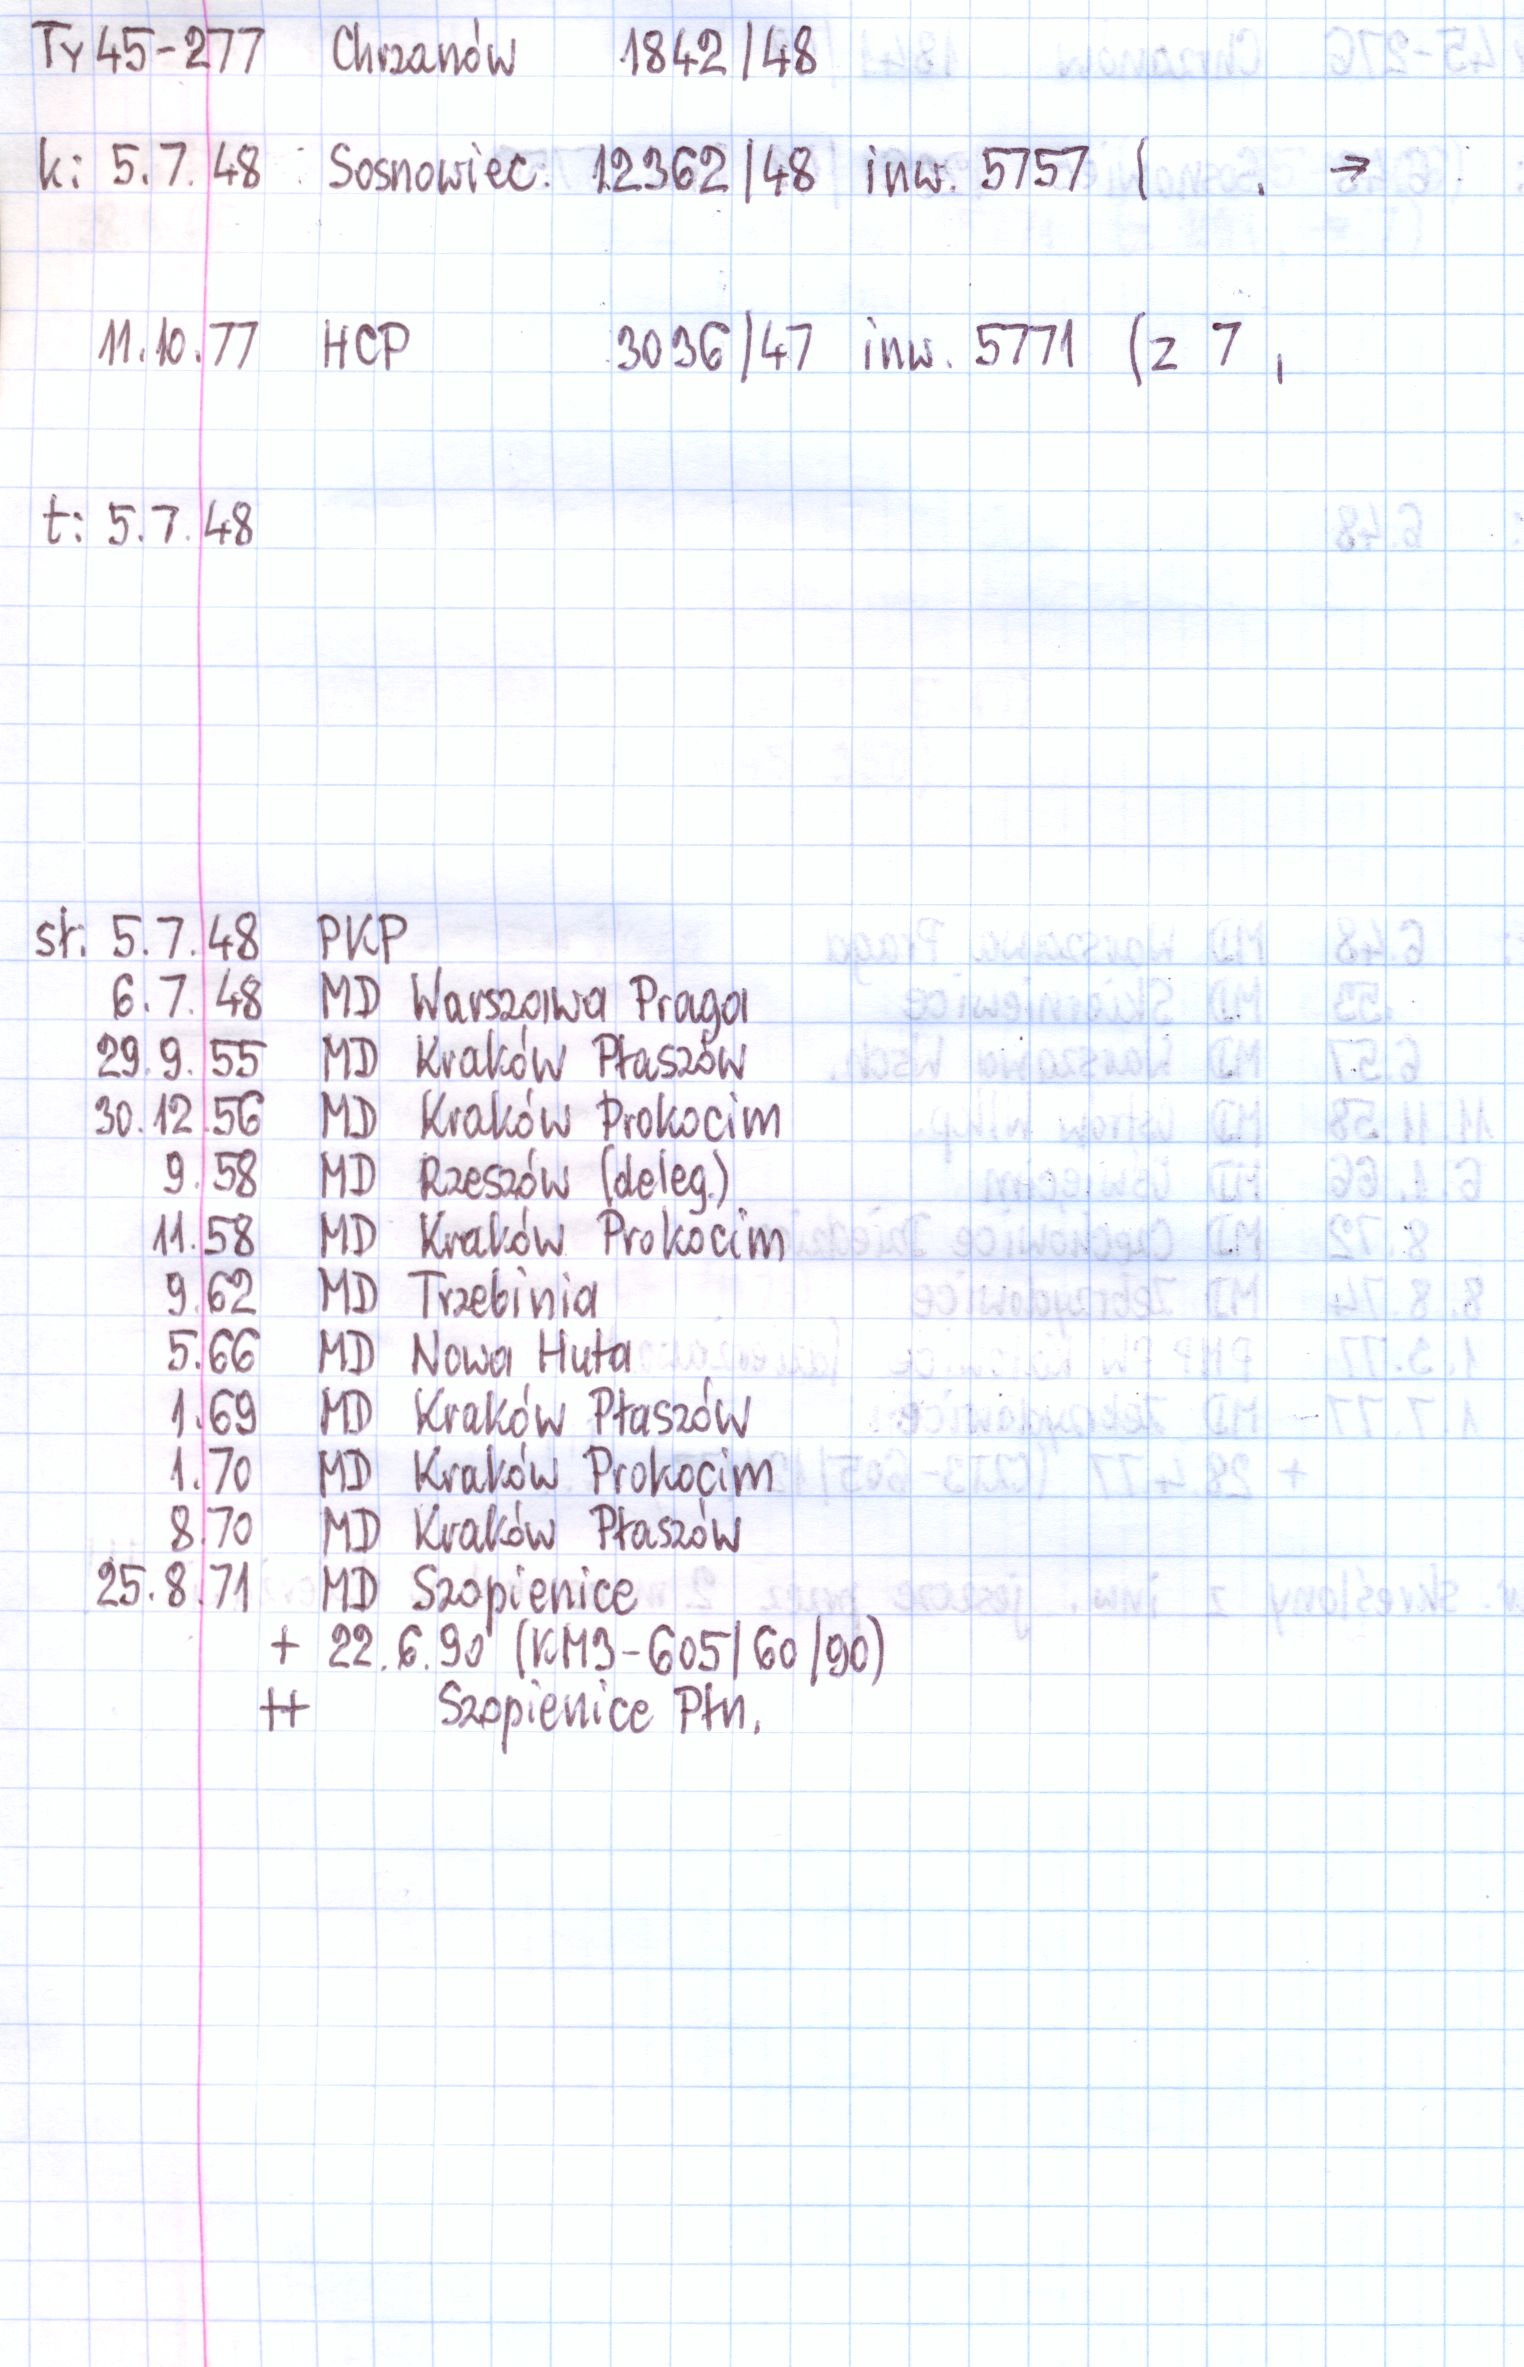 Ty45-277 Chrzanów 1842/48
k: 5.7.48 Sosnowiec 12362/48 inw. 5757 ( . →
11.10.77 HCP 3036/47 inw. 5771 (z 7 ,
t: 5.7.48
st: 5.7.48 PKP
6.7.48 MD Warszawa Praga
29.9.55 MD Kraków Płaszów
30.12.56 MD Kraków Prokocim
9.58 MD Rzeszów (deleg.)
11.58 MD Kraków Prokocim
9.62 MD Trzebinia
5.66 MD Nowa Huta
1.69 MD Kraków Płaszów
1.70 MD Kraków Prokocim
8.70 MD Kraków Płaszów
25.8.71 MD Szopienice
+ 22.6.90 (KM3-605/60/90)
++ Szopienice Płn.